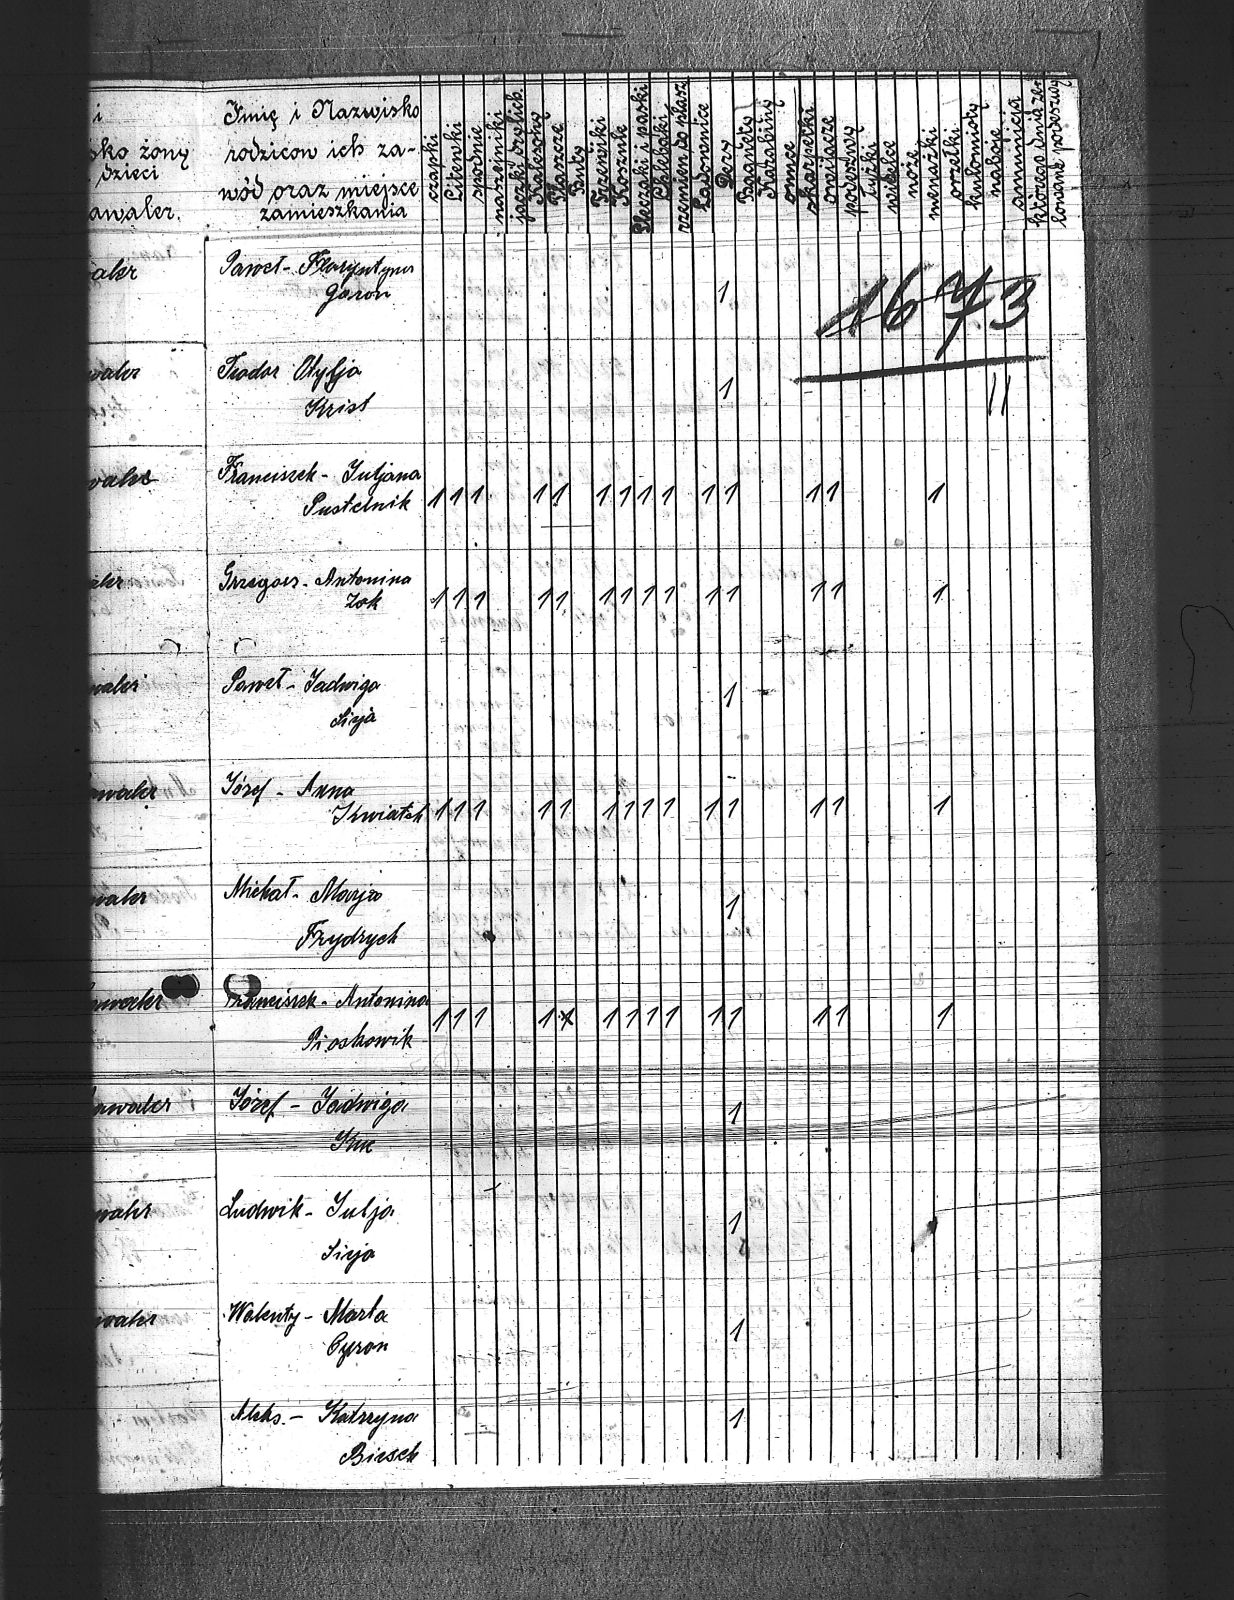 i
sko żony
dzieci
awaler.
Imię i Nazwisko
rodzicow ich za-
wód oraz miejsce
zamieszkania
czapki
Litewki
spodnie
naszeniki
Kalesony
Płaszcze
Buty
Trzewiki
Koszule
Plecaki i paski
Chlebaki
rzemien do płasz
Ładownice
Decy
Bagnety
Karabiny
onuce
skarpetki
owijacze
łyżki
widelce
noże
menażki
orzełki
kulomioty
naboje
amunicja
którego dnia zos
1673
waler
Paweł - Florentyna
Gason
1
waler
Teodor Otylja
Krist
1
11
waler
Franciszek - Juljana
Pustelnik
1 1 1 1 1 1 1 1 1 1 1 1 1 1
waler
Grzegorz - Antonina
Zok
1 1 1 1 1 1 1 1 1 1 1 1 1 1
waler
Paweł - Jadwiga
Sieja
1
awaler
Józef - Anna
Kwiatek
1 1 1 1 1 1 1 1 1 1 1 1 1 1
waler
Michał - Marja
Frydrych
1
awaler
Franciszek - Antonina
Pioskowik
1 1 1 1 1 1 1 1 1 1 1 1 1 1
awaler
Józef - Jadwiga
1
waler
Ludwik - Julja
Sieja
1
waler
Walenty - Marta
Cyron
1
Aleks. - Katrzyna
Biesek
1